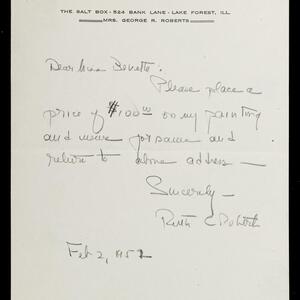 THE SALT BOX • 524 BANK LANE • LAKE FOREST, ILL.
MRS. GEORGE R. ROBERTS
Dear Miss Bennett:
Please place a
price of $100.00 on my painting
and insure for same and
return to above address —
Sincerely —
Ruth C Roberts
Feb 2, 1952